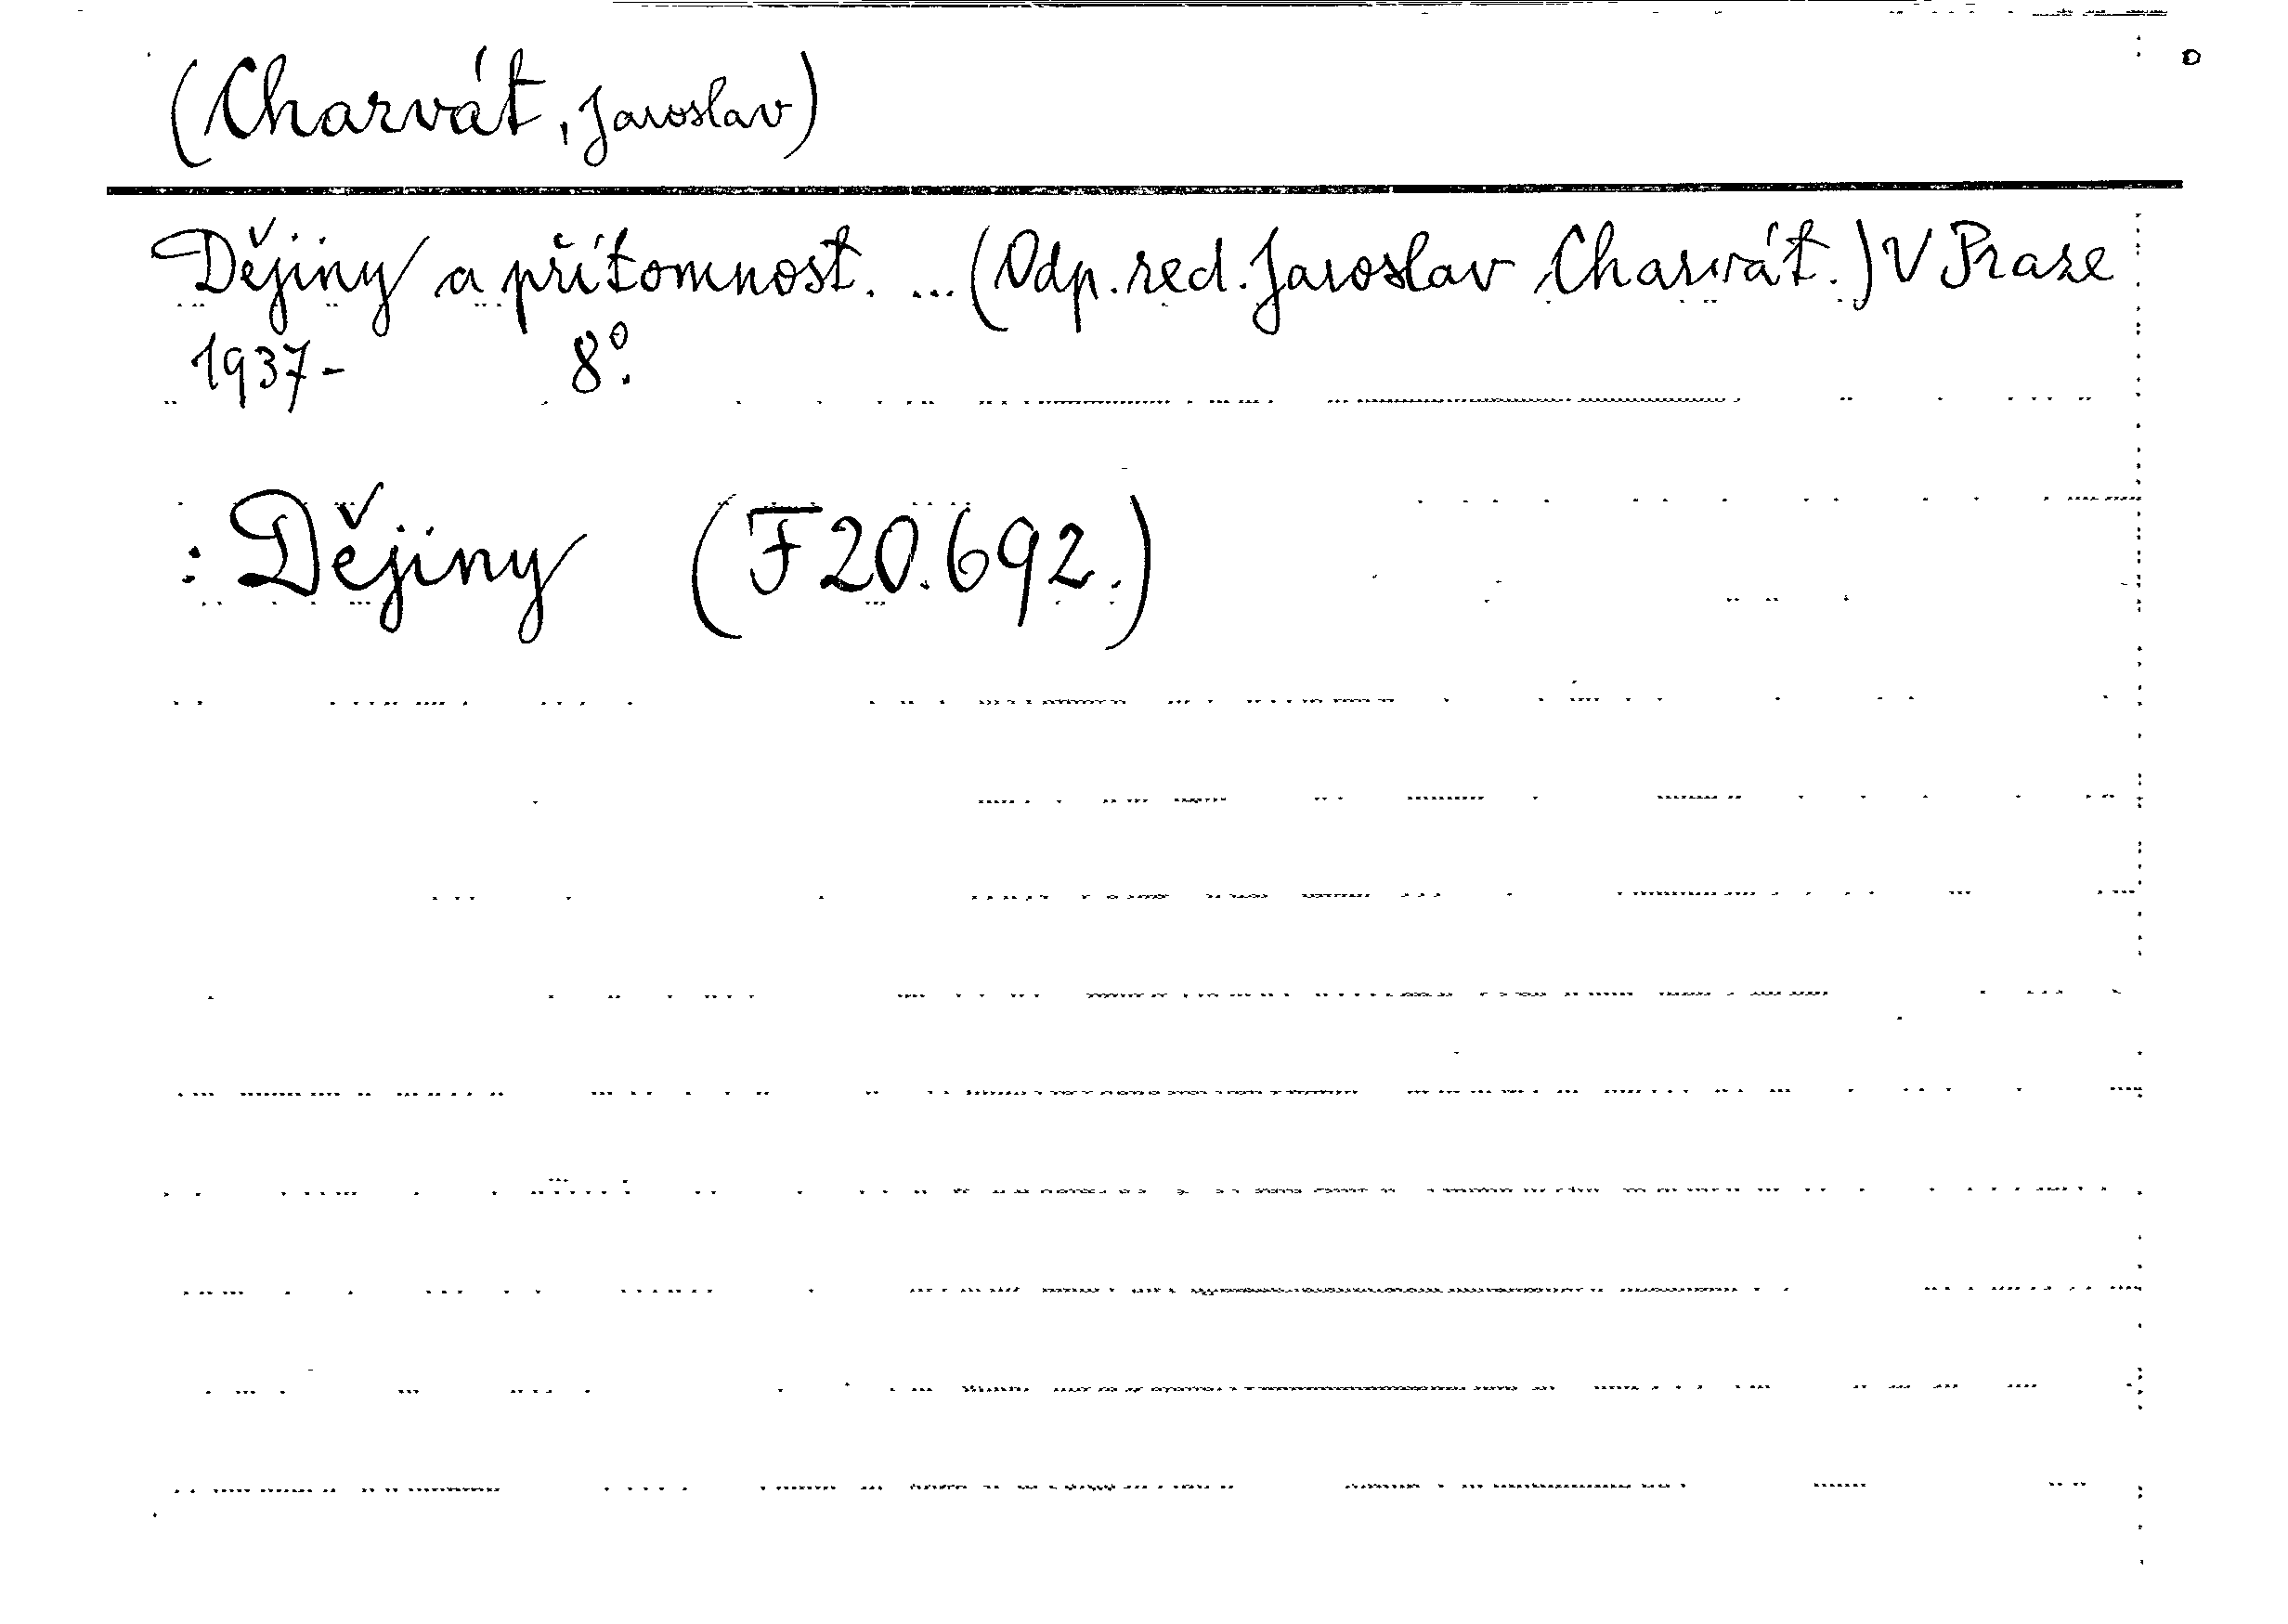 (Charvát, Jaroslav)
Dějiny a přítomnost. ... (Odp. red. Jaroslav Charvát.) V Praze
1937- 8°.
: Dějiny (F 20.692.)